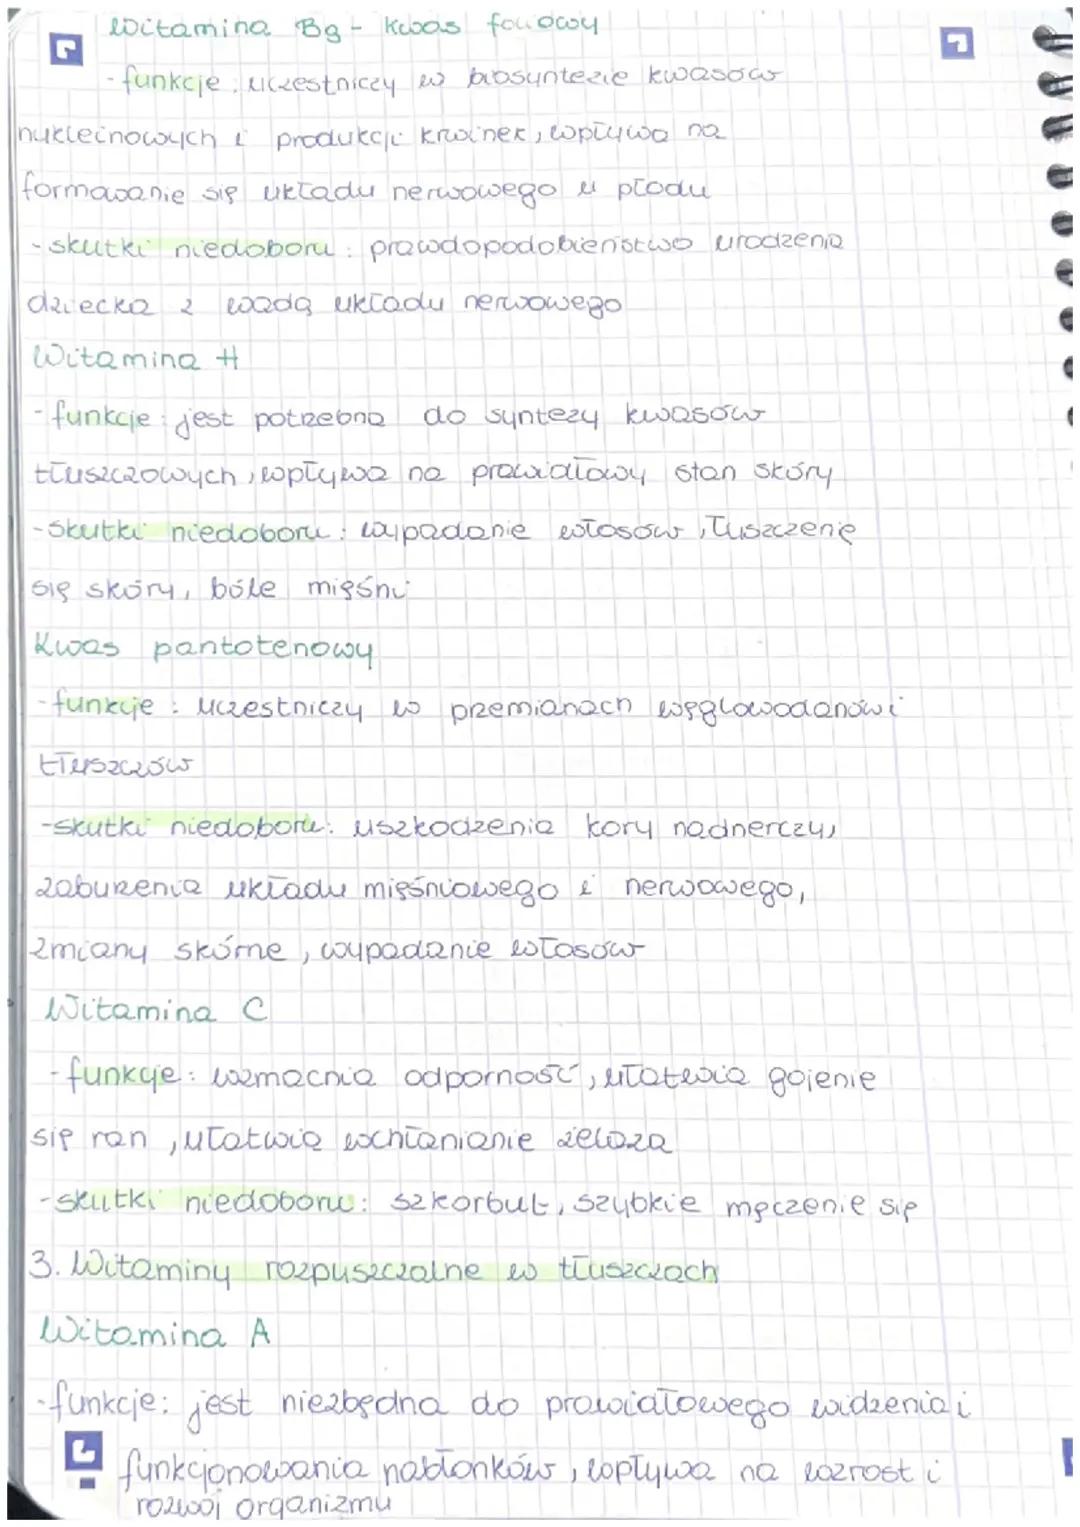 Witamina B9 - kwas foliowy
- funkcje: uczestniczy w biosyntezie kwasów
nukleinowych i produkcji krwinek, wpływa na
formowanie się układu nerwowego u płodu
- skutki niedoboru: prawdopodobieństwo urodzenia
dziecka z wadą układu nerwowego
Witamina H
- funkcje: jest potrzebna do syntezy kwasów
tłuszczowych, wpływa na prawidłowy stan skóry
- skutki niedoboru: wypadanie włosów, łuszczenie
się skóry, bóle mięśni
Kwas pantotenowy
- funkcje: uczestniczy w przemianach węglowodanów i
tłuszczów
- skutki niedoboru: uszkodzenia kory nadnerczy,
zaburzenia układu mięśniowego i nerwowego,
zmiany skórne, wypadanie włosów
Witamina C
- funkcje: wzmacnia odporność, ułatwia gojenie
się ran, ułatwia wchłanianie żelaza
- skutki niedoboru: szkorbut, szybkie męczenie się
3. Witaminy rozpuszczalne w tłuszczach
Witamina A
- funkcje: jest niezbędna do prawidłowego widzenia i
funkcjonowania nabłonków, wpływa na wzrost i
rozwój organizmu